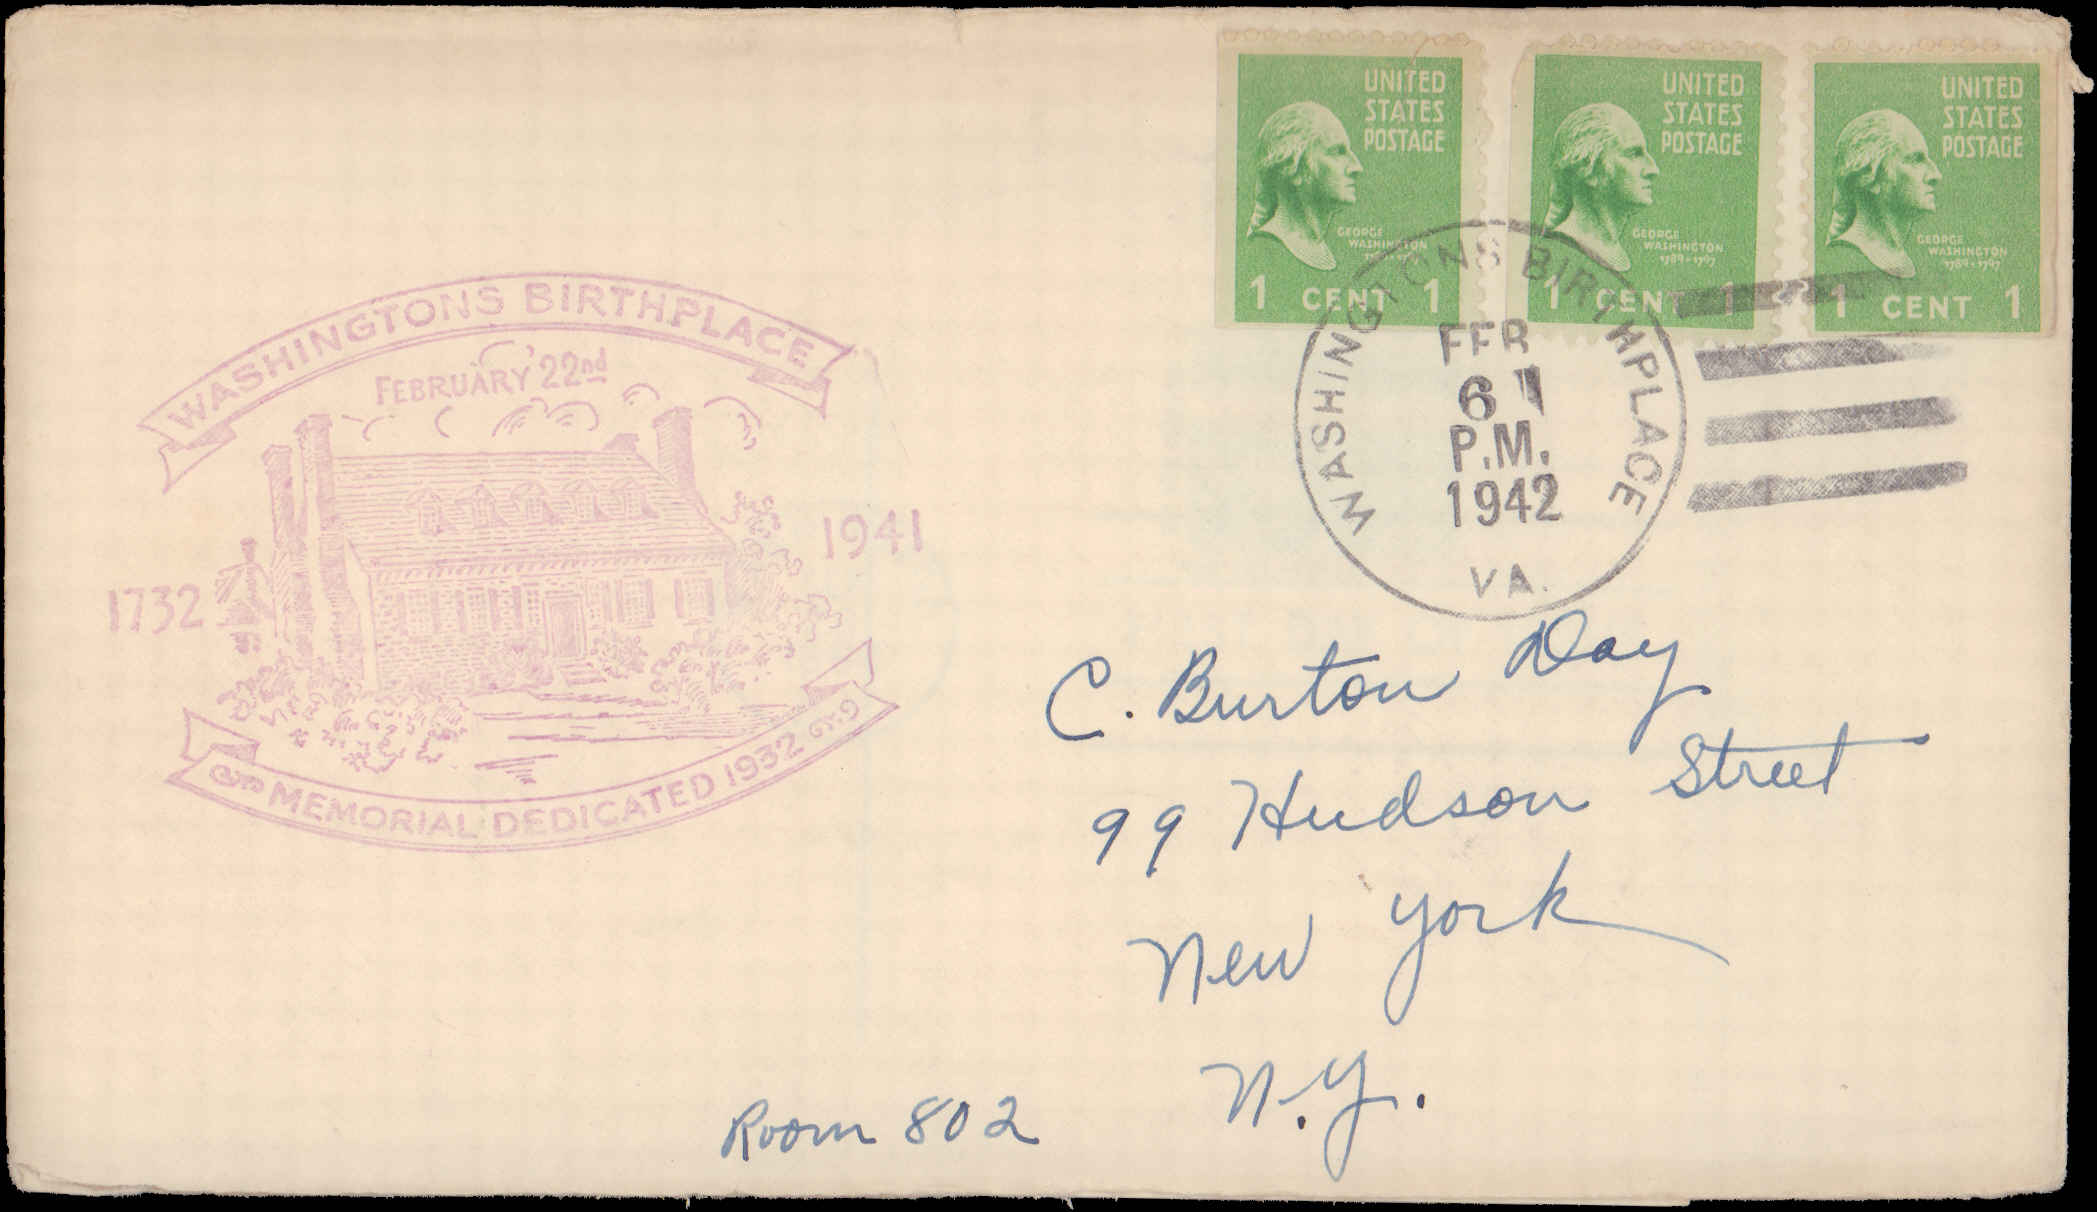 UNITED
STATES
POSTAGE
GEORGE
WASHINGTON
1 CENT 1
UNITED
STATES
POSTAGE
GEORGE
WASHINGTON
1789-1797
1 CENT 1
UNITED
STATES
POSTAGE
GEORGE
WASHINGTON
1789-1797
1 CENT 1
WASHINGTONS BIRTHPLACE
FEB
6
P.M.
1942
VA.
WASHINGTONS BIRTHPLACE
FEBRUARY 22nd
1732
1941
MEMORIAL DEDICATED 1932
C. Burton Day
99 Hudson Street
New York
N.Y.
Room 802